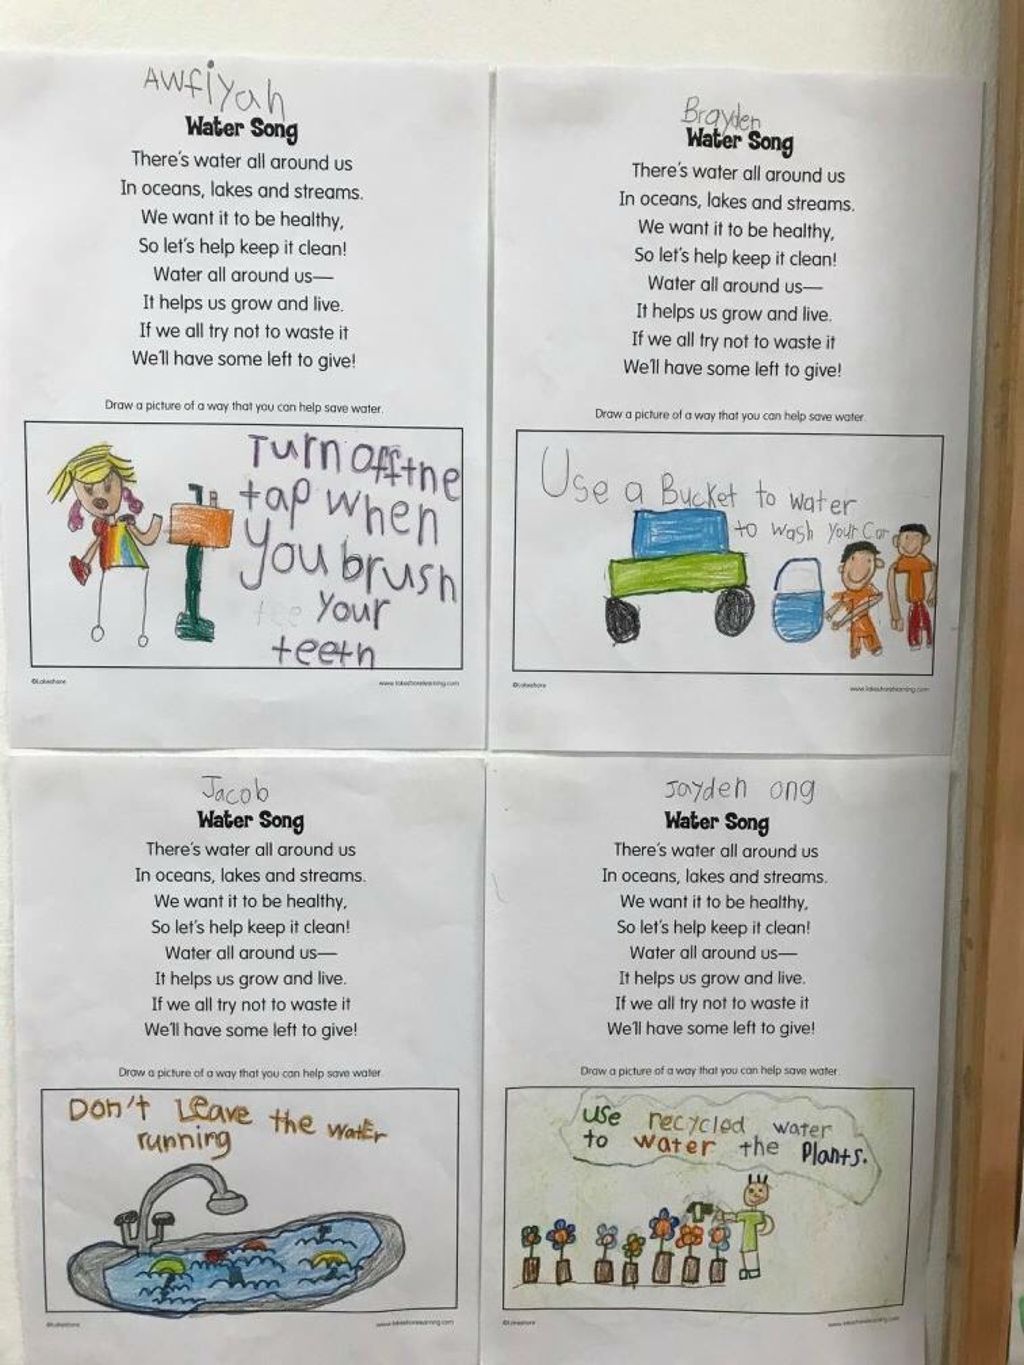 Awfiyah
Water Song
There's water all around us
In oceans, lakes and streams.
We want it to be healthy,
So let's help keep it clean!
Water all around us—
It helps us grow and live.
If we all try not to waste it
We'll have some left to give!
Draw a picture of a way that you can help save water.
Turn off the
tap when
you brush
tee your
teeth
©Lakeshore
www.lakeshorelearning.com
Brayden
Water Song
There's water all around us
In oceans, lakes and streams.
We want it to be healthy,
So let's help keep it clean!
Water all around us—
It helps us grow and live.
If we all try not to waste it
We'll have some left to give!
Draw a picture of a way that you can help save water.
Use a Bucket to water
to wash your Car
©Lakeshore
www.lakeshorelearning.com
Jacob
Water Song
There's water all around us
In oceans, lakes and streams.
We want it to be healthy,
So let's help keep it clean!
Water all around us—
It helps us grow and live.
If we all try not to waste it
We'll have some left to give!
Draw a picture of a way that you can help save water.
Don't Leave the water
running
©Lakeshore
www.lakeshorelearning.com
Jayden ong
Water Song
There's water all around us
In oceans, lakes and streams.
We want it to be healthy,
So let's help keep it clean!
Water all around us—
It helps us grow and live.
If we all try not to waste it
We'll have some left to give!
Draw a picture of a way that you can help save water.
use recycled water
to water the Plants.
©Lakeshore
www.lakeshorelearning.com